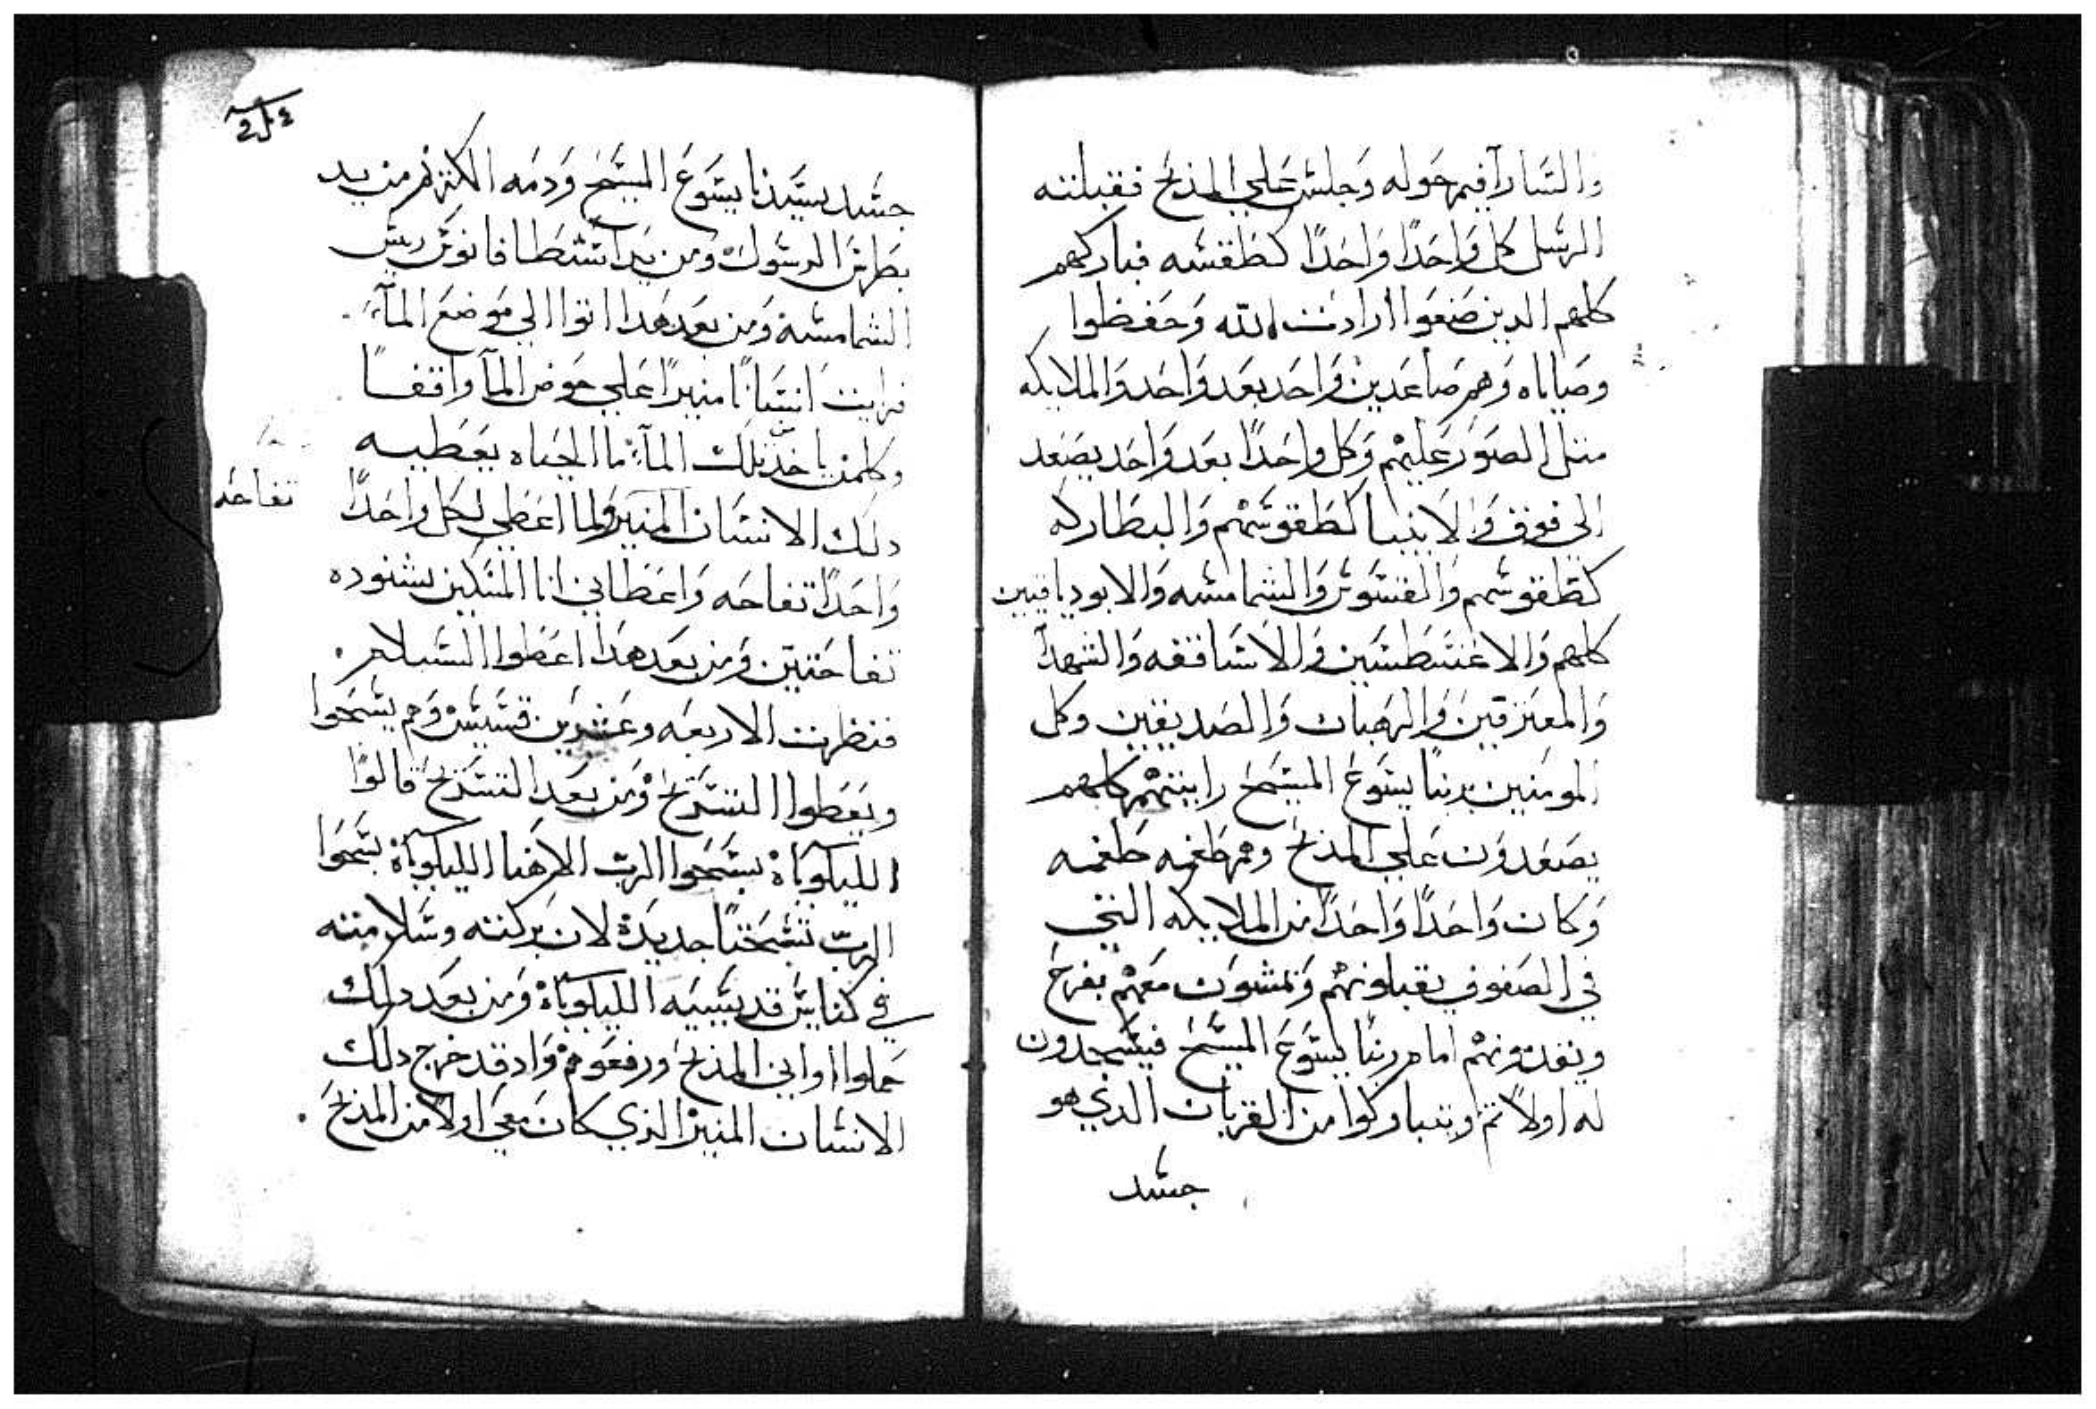 والسارافيم حوله وجلس علي المذبح فقبلته
الرسل كل واحدًا واحدًا كطقسه فباركهم
كلهم الدين صنعوا ارادت الله وحفظوا
وصاياه وهم صاعدين واحد بعد واحد والملايكه
متل الصور عليهم وكل واحدًا بعد واحد يصعد
الي فوق والانبيا كطقوسهم والبطاركه
كطقوسهم والقسوس والشمامسه والابودياقنين
كلهم والاغنسطسين والاساقفه والشهدآ
والمعترفين والرهبان والصديقين وكل
المومنين بربنا يسوع المسيح رايتهم كلهم
يصعدون علي المذبح وهم طغمه طغمه
وكان واحدًا واحدًا من الملايكه التي
في الصفوف يقبلونهم وتمشون معهم بفرح
ويقدمونهم امام ربنا يسوع المسيح فيسجدون
له اولاً تم ويتباركوا من القربان الدي هو
جسد
جسد سيدنا يسوع المسيح ودمه الكريم من يد
بطرس الرسول ومن يد استطافانوس ريس
الشمامسة ومن بعد هدا اتوا الي موضع المآء
فرايت انسانًا منيرًا علي حوض المآ واقفًا
وكلمن ياخد من تلك المآء ما الحياه يعطيه
دلك الانسان المنير ولما اعطي لكل واحدًا
تفاحه
واحدًا تفاحه واعطاني انا المسكين شنوده
تفاحتين ومن بعد هدا اعطوا السلام.
فنظرت الاربعه وعشرين قسيس وهم يسبحوا
ويعطوا التسبيح ومن بعد التسبيح قالوا
الليلوياه سبحوا الرب الاهنا الليلوياه سبحوا
الرب تسبحتًا جديدة لان بركته وسلامته
في كنايس قديسيه الليلوياه ومن بعد دلك
حملوا اواني المذبح ورفعوهم واد قد خرج دلك
الانسان المنير الذي كان معي اولاً من المذبح.